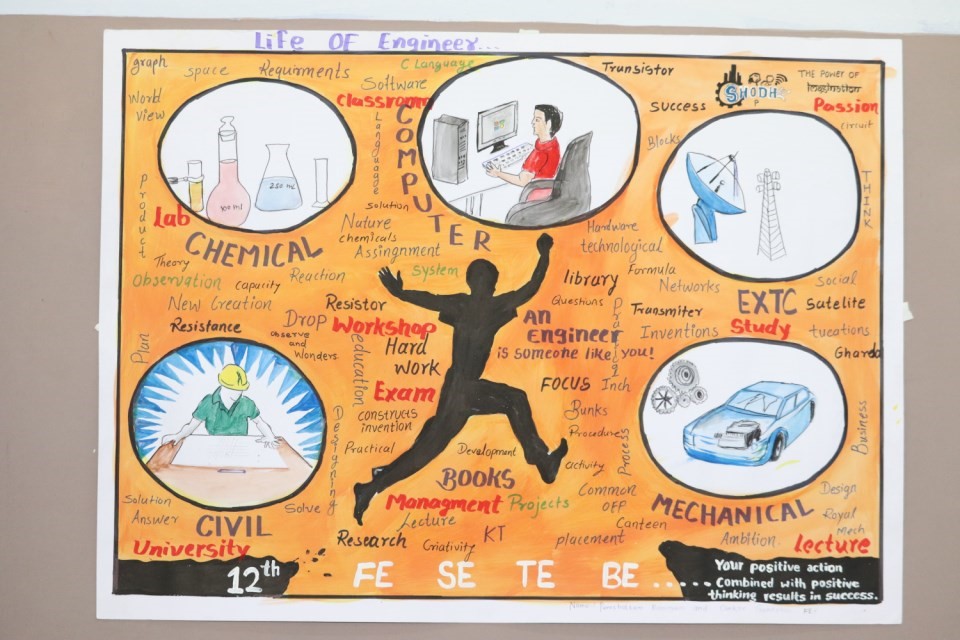 Life OF Engineer...
graph
space
Requirments
C Language
Transistor
SHODH
P
THE POWER OF
Imagination
Passion
circuit
World
view
Software
Classroom
Language
COMPUTER
SUCCESS
Blocks
THINK
product
Lab
100 ml
250 ML
CHEMICAL
Theory
Observation
capacity
Reaction
New Creation
Resistance
Drop
observe
and
Wonders
Plan
solution
Nature
chemicals
Assingnment
System
Resistor
Workshop
Hard
work
education
Exam
constructs
invention
Designing
Practical
Hardware
technological
library
Questions
AN
Engineer
is someone like you!
FOCUS
Inch
Bunks
Procedure
Process
activity
Development
Formula
Networks
Transmiter
Inventions
EXTC
Study
Social
Satelite
tucations
Gharda
Business
BOOKS
Managment
Projects
Lecture
KT
Research
Criativity
placement
Common
OFF
Canteen
Solution
Answer
Solve
CIVIL
University
MECHANICAL
Design
Royal
Mech
Ambition
Lecture
12th
FE SE TE BE.....
Your positive action
Combined with positive
thinking results in success.